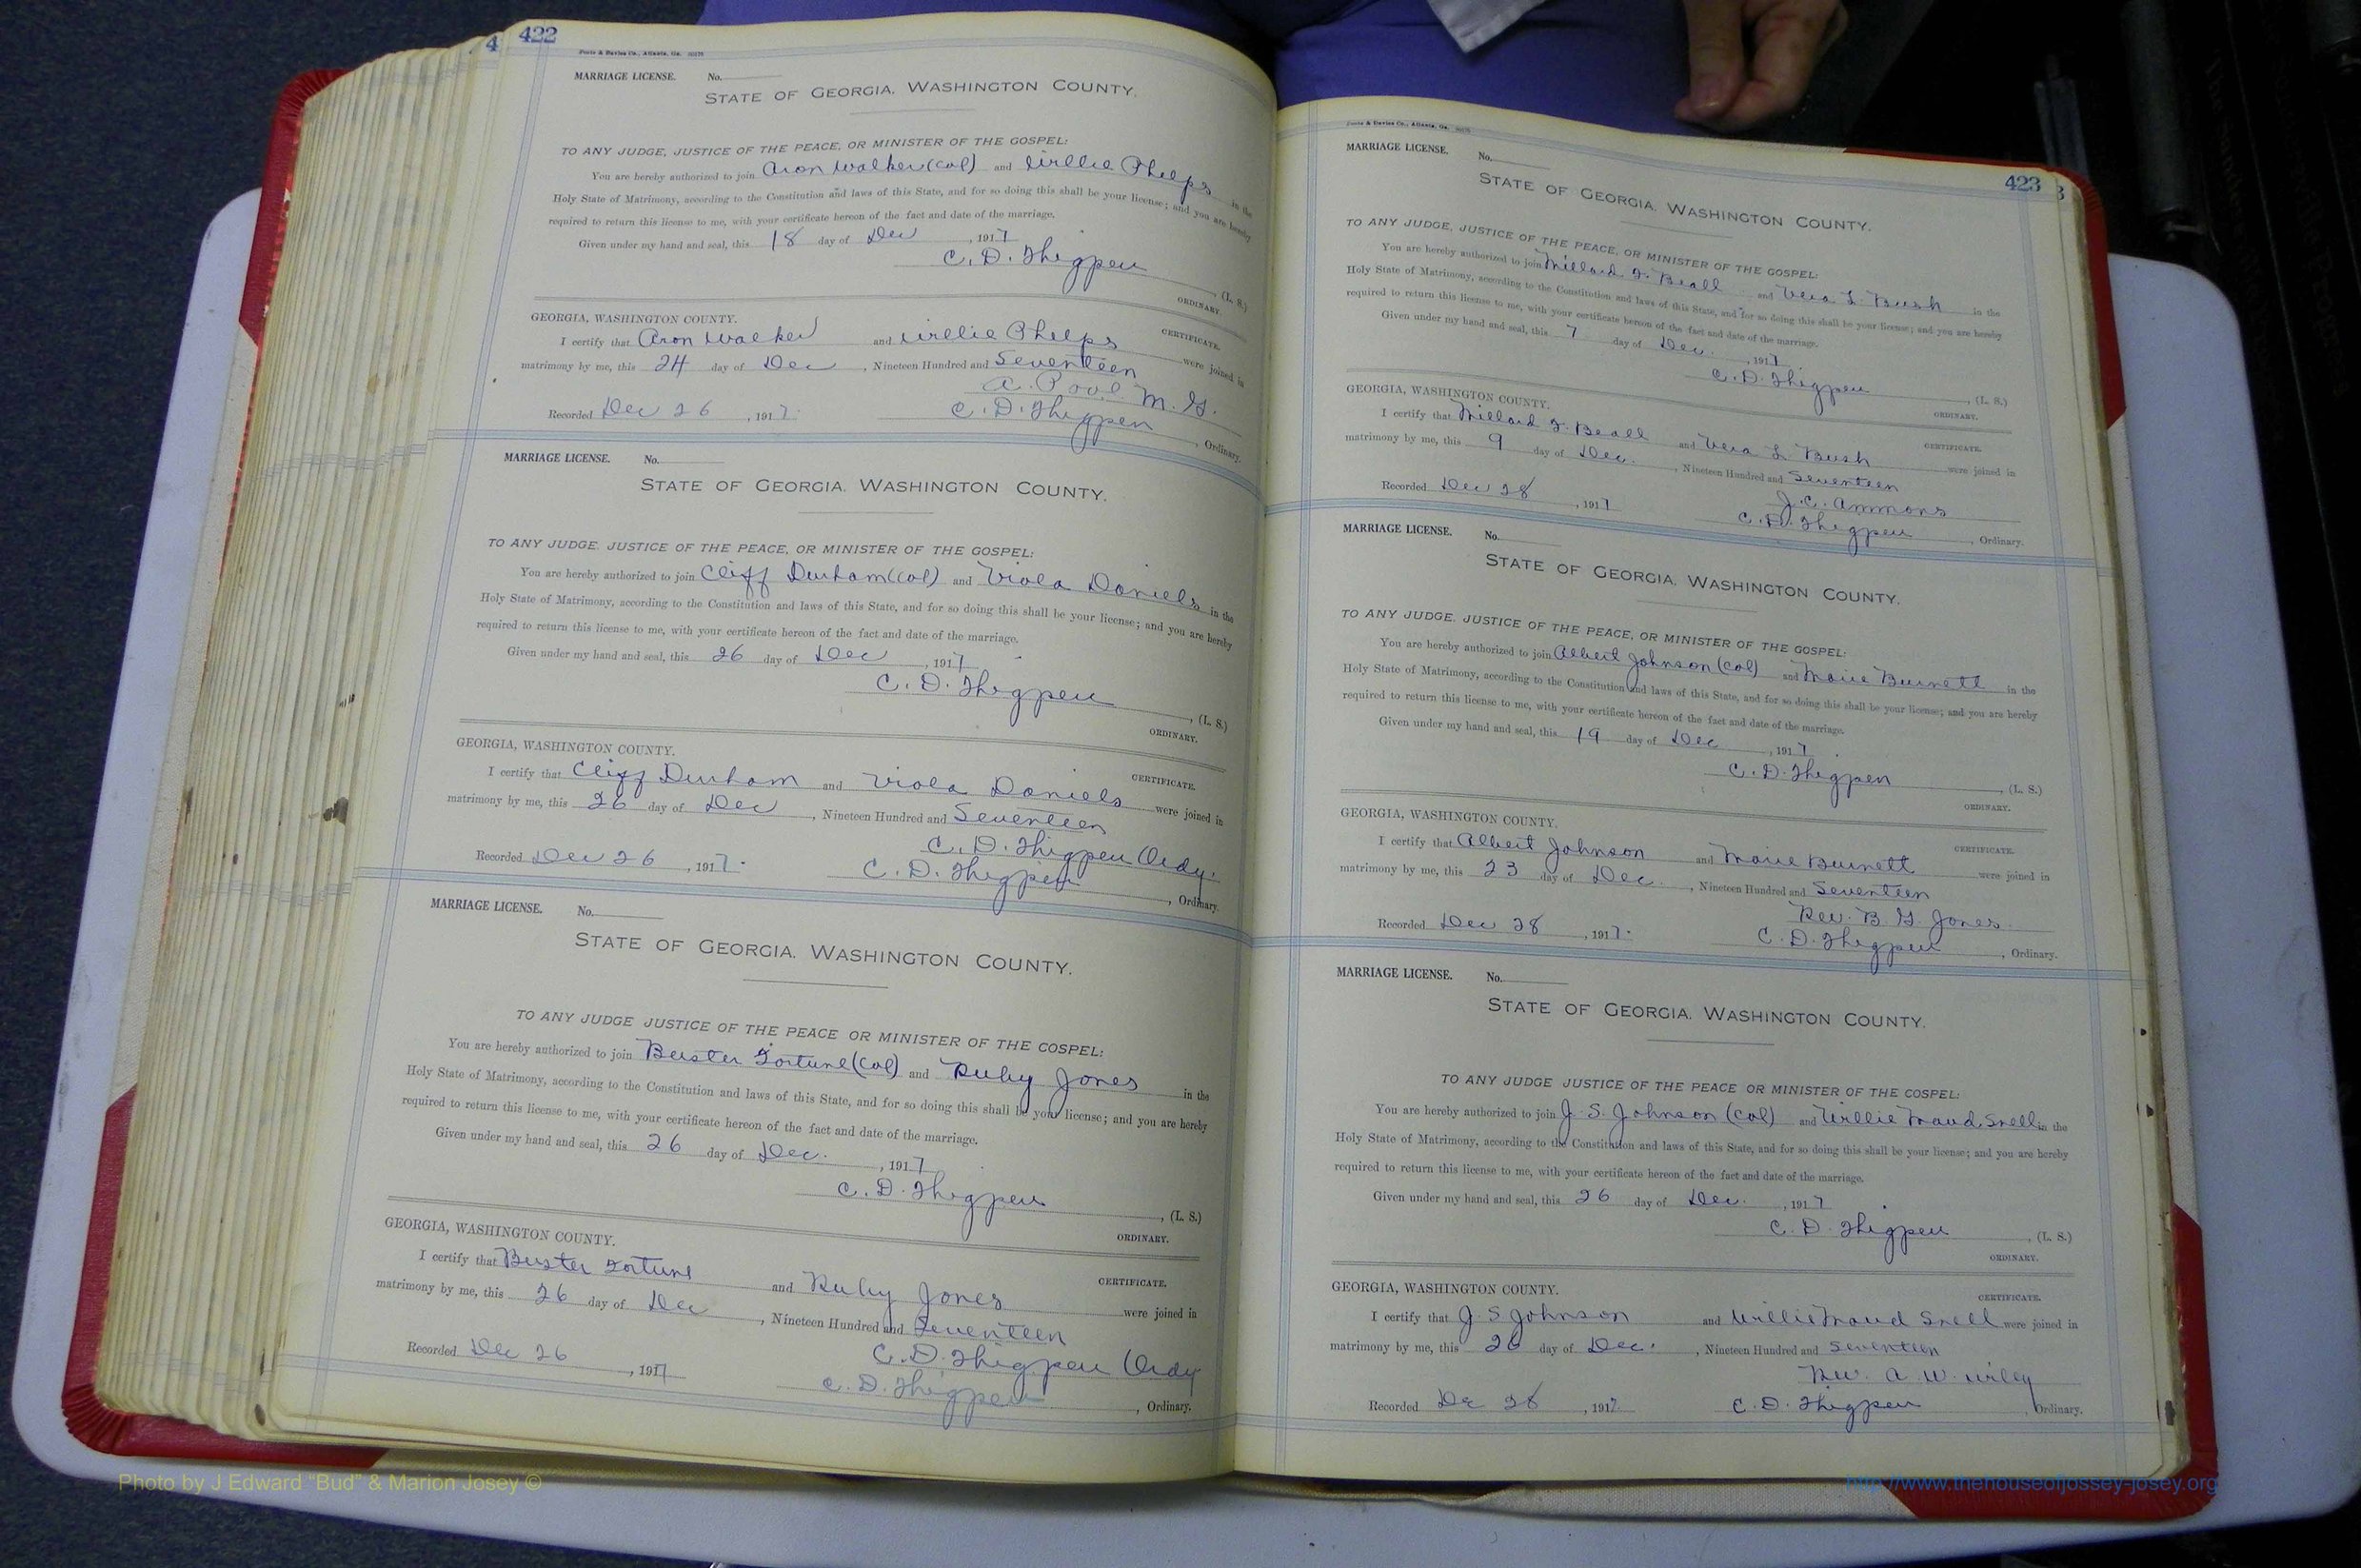 4 422
Foote & Davies Co., Atlanta, Ga.
MARRIAGE LICENSE. No.
STATE OF GEORGIA, WASHINGTON COUNTY.
TO ANY JUDGE, JUSTICE OF THE PEACE, OR MINISTER OF THE GOSPEL:
You are hereby authorized to join Aron Walker (Col) and Willie Phelps in the
Holy State of Matrimony, according to the Constitution and laws of this State, and for so doing this shall be your license; and you are hereby
required to return this license to me, with your certificate hereon of the fact and date of the marriage.
Given under my hand and seal, this 18 day of Dec, 1917
C. D. Thigpen (L. S.)
ORDINARY.
GEORGIA, WASHINGTON COUNTY. CERTIFICATE.
I certify that Aron Walker and Willie Phelps were joined in
matrimony by me, this 24 day of Dec, Nineteen Hundred and Seventeen
A. Pool M. G.
Recorded Dec 26, 1917. C. D. Thigpen, Ordinary.
MARRIAGE LICENSE. No.
STATE OF GEORGIA, WASHINGTON COUNTY.
TO ANY JUDGE, JUSTICE OF THE PEACE, OR MINISTER OF THE GOSPEL:
You are hereby authorized to join Cliff Durham (Col) and Viola Daniels in the
Holy State of Matrimony, according to the Constitution and laws of this State, and for so doing this shall be your license; and you are hereby
required to return this license to me, with your certificate hereon of the fact and date of the marriage.
Given under my hand and seal, this 26 day of Dec, 1917
C. D. Thigpen, (L. S.)
ORDINARY.
GEORGIA, WASHINGTON COUNTY. CERTIFICATE.
I certify that Cliff Durham and Viola Daniels were joined in
matrimony by me, this 26 day of Dec, Nineteen Hundred and Seventeen
C. D. Thigpen Ordy.
Recorded Dec 26, 1917. C. D. Thigpen, Ordinary.
MARRIAGE LICENSE. No.
STATE OF GEORGIA, WASHINGTON COUNTY.
TO ANY JUDGE JUSTICE OF THE PEACE OR MINISTER OF THE GOSPEL:
You are hereby authorized to join Buster Fortune (Col) and Ruby Jones in the
Holy State of Matrimony, according to the Constitution and laws of this State, and for so doing this shall be your license; and you are hereby
required to return this license to me, with your certificate hereon of the fact and date of the marriage.
Given under my hand and seal, this 26 day of Dec., 1917
C. D. Thigpen, (L. S.)
ORDINARY.
GEORGIA, WASHINGTON COUNTY. CERTIFICATE.
I certify that Buster Fortune and Ruby Jones were joined in
matrimony by me, this 26 day of Dec, Nineteen Hundred and Seventeen
C. D. Thigpen Ordy
Recorded Dec 26, 1917 C. D. Thigpen, Ordinary.
423
Foote & Davies Co., Atlanta, Ga.
MARRIAGE LICENSE. No.
STATE OF GEORGIA, WASHINGTON COUNTY.
TO ANY JUDGE, JUSTICE OF THE PEACE, OR MINISTER OF THE GOSPEL:
You are hereby authorized to join Millard F. Beall and Vera L. Bush in the
Holy State of Matrimony, according to the Constitution and laws of this State, and for so doing this shall be your license; and you are hereby
required to return this license to me, with your certificate hereon of the fact and date of the marriage.
Given under my hand and seal, this 7 day of Dec., 1917
C. D. Thigpen, (L. S.)
ORDINARY.
GEORGIA, WASHINGTON COUNTY. CERTIFICATE.
I certify that Millard F. Beall and Vera L Bush were joined in
matrimony by me, this 9 day of Dec., Nineteen Hundred and Seventeen
J. C. Ammons
Recorded Dec 28, 1917 C. D. Thigpen, Ordinary.
MARRIAGE LICENSE. No.
STATE OF GEORGIA, WASHINGTON COUNTY.
TO ANY JUDGE, JUSTICE OF THE PEACE, OR MINISTER OF THE GOSPEL:
You are hereby authorized to join Albert Johnson (Col) and Marie Burnett in the
Holy State of Matrimony, according to the Constitution and laws of this State, and for so doing this shall be your license; and you are hereby
required to return this license to me, with your certificate hereon of the fact and date of the marriage.
Given under my hand and seal, this 19 day of Dec, 1917
C. D. Thigpen, (L. S.)
ORDINARY.
GEORGIA, WASHINGTON COUNTY. CERTIFICATE.
I certify that Albert Johnson and Marie Burnett were joined in
matrimony by me, this 23 day of Dec., Nineteen Hundred and Seventeen
Rev. B. G. Jones
Recorded Dec 28, 1917. C. D. Thigpen, Ordinary.
MARRIAGE LICENSE. No.
STATE OF GEORGIA, WASHINGTON COUNTY.
TO ANY JUDGE JUSTICE OF THE PEACE OR MINISTER OF THE GOSPEL:
You are hereby authorized to join J. S. Johnson (Col) and Willie Maud Snell in the
Holy State of Matrimony, according to the Constitution and laws of this State, and for so doing this shall be your license; and you are hereby
required to return this license to me, with your certificate hereon of the fact and date of the marriage.
Given under my hand and seal, this 26 day of Dec., 1917
C. D. Thigpen, (L. S.)
ORDINARY.
GEORGIA, WASHINGTON COUNTY. CERTIFICATE.
I certify that J S Johnson and Willie Maud Snell were joined in
matrimony by me, this 26 day of Dec., Nineteen Hundred and Seventeen
Rev. A. W. Wiley
Recorded De 28, 1917. C. D. Thigpen, Ordinary.
Photo by J Edward "Bud" & Marion Josey ©
http://www.thehouseofjossey-josey.org